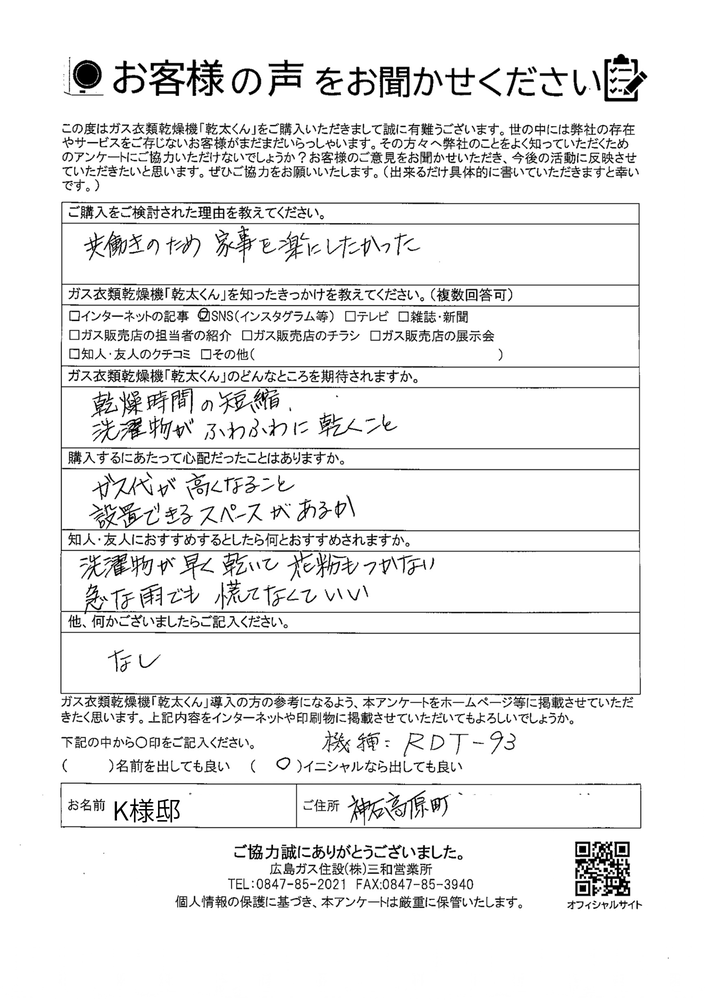 お客様の声をお聞かせください
この度はガス衣類乾燥機「乾太くん」をご購入いただきまして誠に有難うございます。世の中には弊社の存在
やサービスをご存じないお客様がまだまだいらっしゃいます。その方々へ弊社のことをよく知っていただくため
のアンケートにご協力いただけないでしょうか？お客様のご意見をお聞かせいただき、今後の活動に反映させ
ていただきたいと思います。ぜひご協力をお願いいたします。（出来るだけ具体的に書いていただきますと幸い
です。）
ご購入をご検討された理由を教えてください。
共働きのため 家事を楽にしたかった
ガス衣類乾燥機「乾太くん」を知ったきっかけを教えてください。（複数回答可）
□インターネットの記事 ☑SNS(インスタグラム等) □テレビ □雑誌・新聞
□ガス販売店の担当者の紹介 □ガス販売店のチラシ □ガス販売店の展示会
□知人・友人のクチコミ □その他( )
ガス衣類乾燥機「乾太くん」のどんなところを期待されますか。
乾燥時間の短縮、
洗濯物が ふわふわに 乾くこと
購入するにあたって心配だったことはありますか。
ガス代が 高くなること
設置できるスペースがあるか
知人・友人におすすめするとしたら何とおすすめされますか。
洗濯物が 早く乾いて 花粉もつかない
急な雨でも 慌てなくていい
他、何かございましたらご記入ください。
なし
ガス衣類乾燥機「乾太くん」導入の方の参考になるよう、本アンケートをホームページ等に掲載させていただ
きたく思います。上記内容をインターネットや印刷物に掲載させていただいてもよろしいでしょうか。
下記の中から〇印をご記入ください。 機種：RDT-93
( )名前を出しても良い ( 〇 )イニシャルなら出しても良い
お名前 K様邸 ご住所 神石高原町
ご協力誠にありがとうございました。
広島ガス住設(株)三和営業所
TEL:0847-85-2021 FAX:0847-85-3940
個人情報の保護に基づき、本アンケートは厳重に保管いたします。
オフィシャルサイト